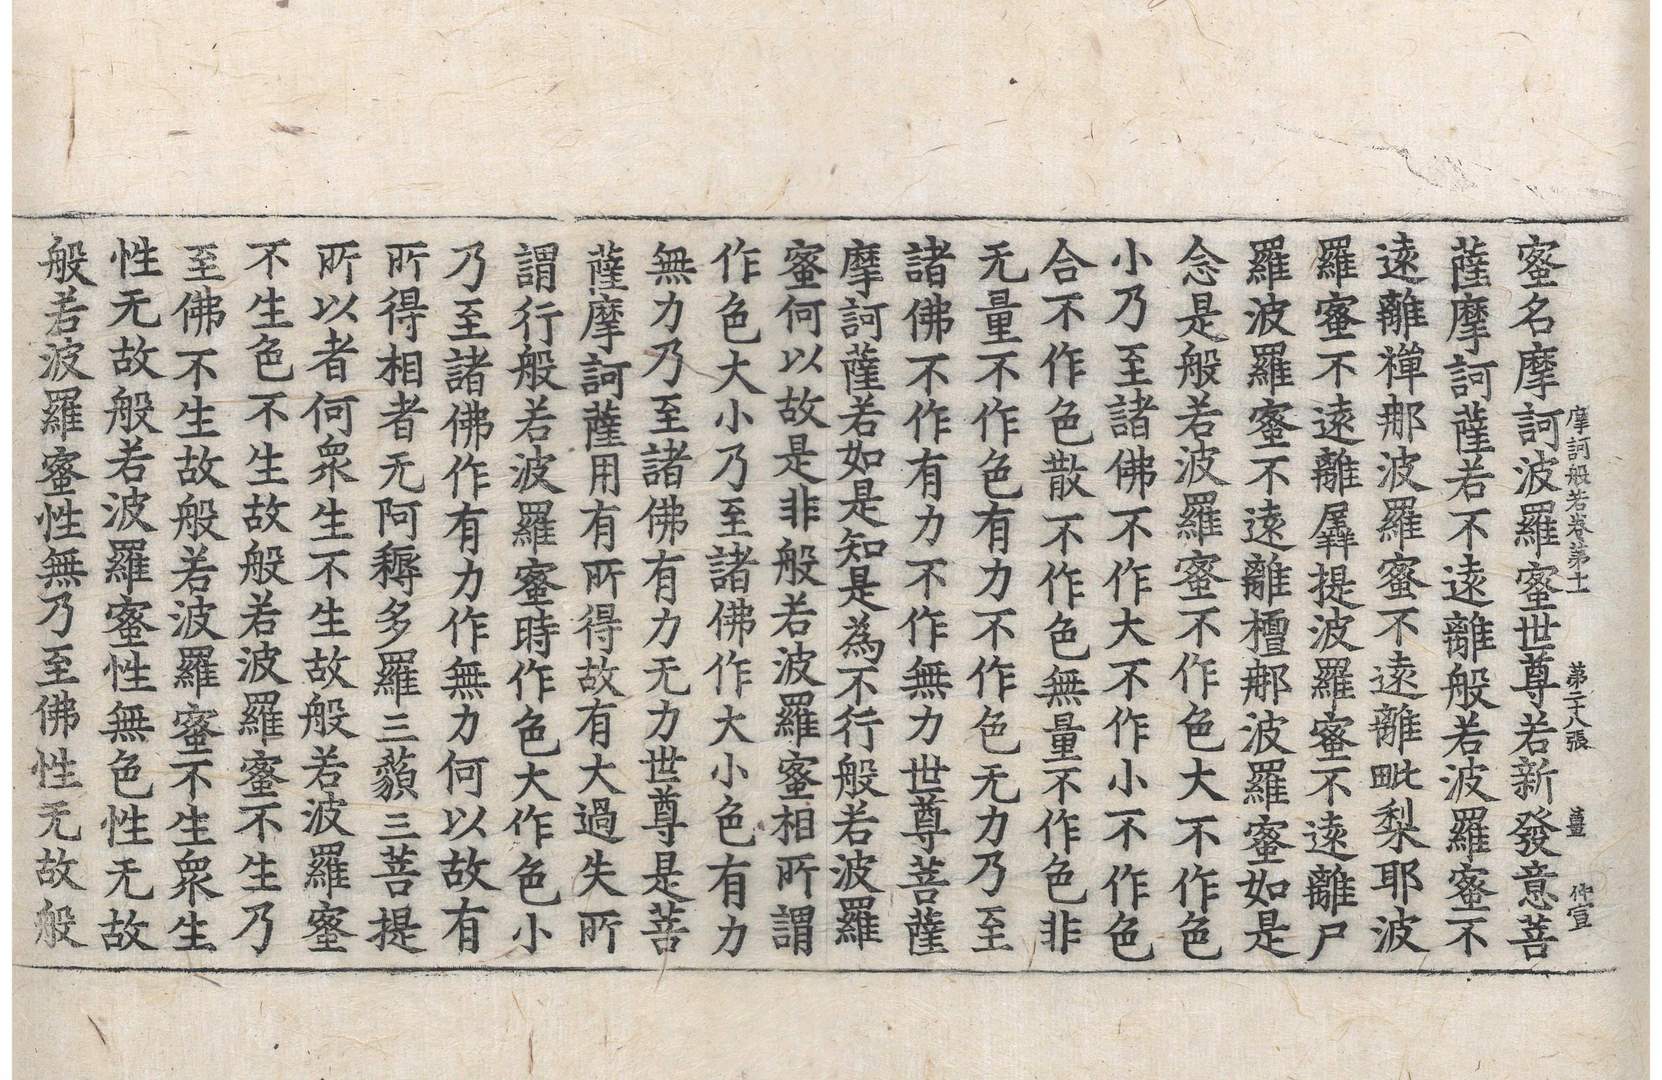 摩訶般若卷第十一 第二十八張 薑 仲宣
蜜名摩訶波羅蜜世尊若新發意菩
薩摩訶薩若不遠離般若波羅蜜不
遠離禪那波羅蜜不遠離毗梨耶波
羅蜜不遠離羼提波羅蜜不遠離尸
羅波羅蜜不遠離檀那波羅蜜如是
念是般若波羅蜜不作色大不作色
小乃至諸佛不作大不作小不作色
合不作色散不作色無量不作色非
无量不作色有力不作色无力乃至
諸佛不作有力不作無力世尊菩薩
摩訶薩若如是知是為不行般若波羅
蜜何以故是非般若波羅蜜相所謂
作色大小乃至諸佛作大小色有力
無力乃至諸佛有力无力世尊是菩
薩摩訶薩用有所得故有大過失所
謂行般若波羅蜜時作色大作色小
乃至諸佛作有力作無力何以故有
所得相者无阿耨多羅三藐三菩提
所以者何眾生不生故般若波羅蜜
不生色不生故般若波羅蜜不生乃
至佛不生故般若波羅蜜不生眾生
性无故般若波羅蜜性無色性无故
般若波羅蜜性無乃至佛性无故般